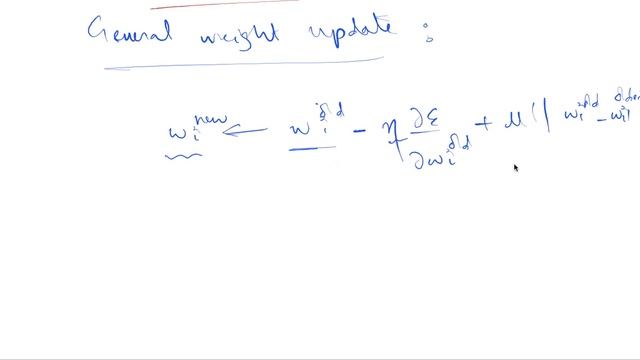 General weight update :
wᵢⁿᵉʷ ← wᵢᵒˡᵈ - η ∂ε/∂wᵢᵒˡᵈ + μ || wᵢᵒˡᵈ - wᵢ